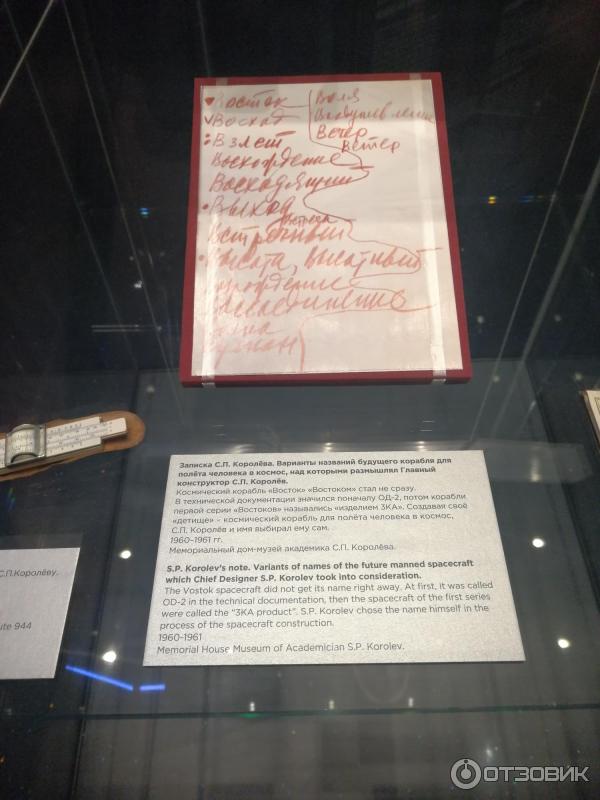 Восток
Восход
Взлёт
Восхождение
Восходящий
Выход
Встречный
Высота,
Воля
Вечер
Ветер
Записка С.П. Королёва. Варианты названий будущего корабля для
полёта человека в космос, над которыми размышлял Главный
конструктор С.П. Королёв.
Космический корабль «Восток» «Востоком» стал не сразу.
В технической документации значился поначалу ОД-2, потом корабли
первой серии «Востоков» назывались «изделием 3КА». Создавая своё
«детище» – космический корабль для полёта человека в космос,
С.П. Королёв и имя выбирал ему сам.
1960–1961 гг.
Мемориальный дом-музей академика С.П. Королёва.
S.P. Korolev's note. Variants of names of the future manned spacecraft
which Chief Designer S.P. Korolev took into consideration.
The Vostok spacecraft did not get its name right away. At first, it was called
OD-2 in the technical documentation, then the spacecraft of the first series
were called the "3KA product". S.P. Korolev chose the name himself in the
process of the spacecraft construction.
1960-1961
Memorial House Museum of Academician S.P. Korolev.
С.П.Королёву.
ute 944
ОТЗОВИК